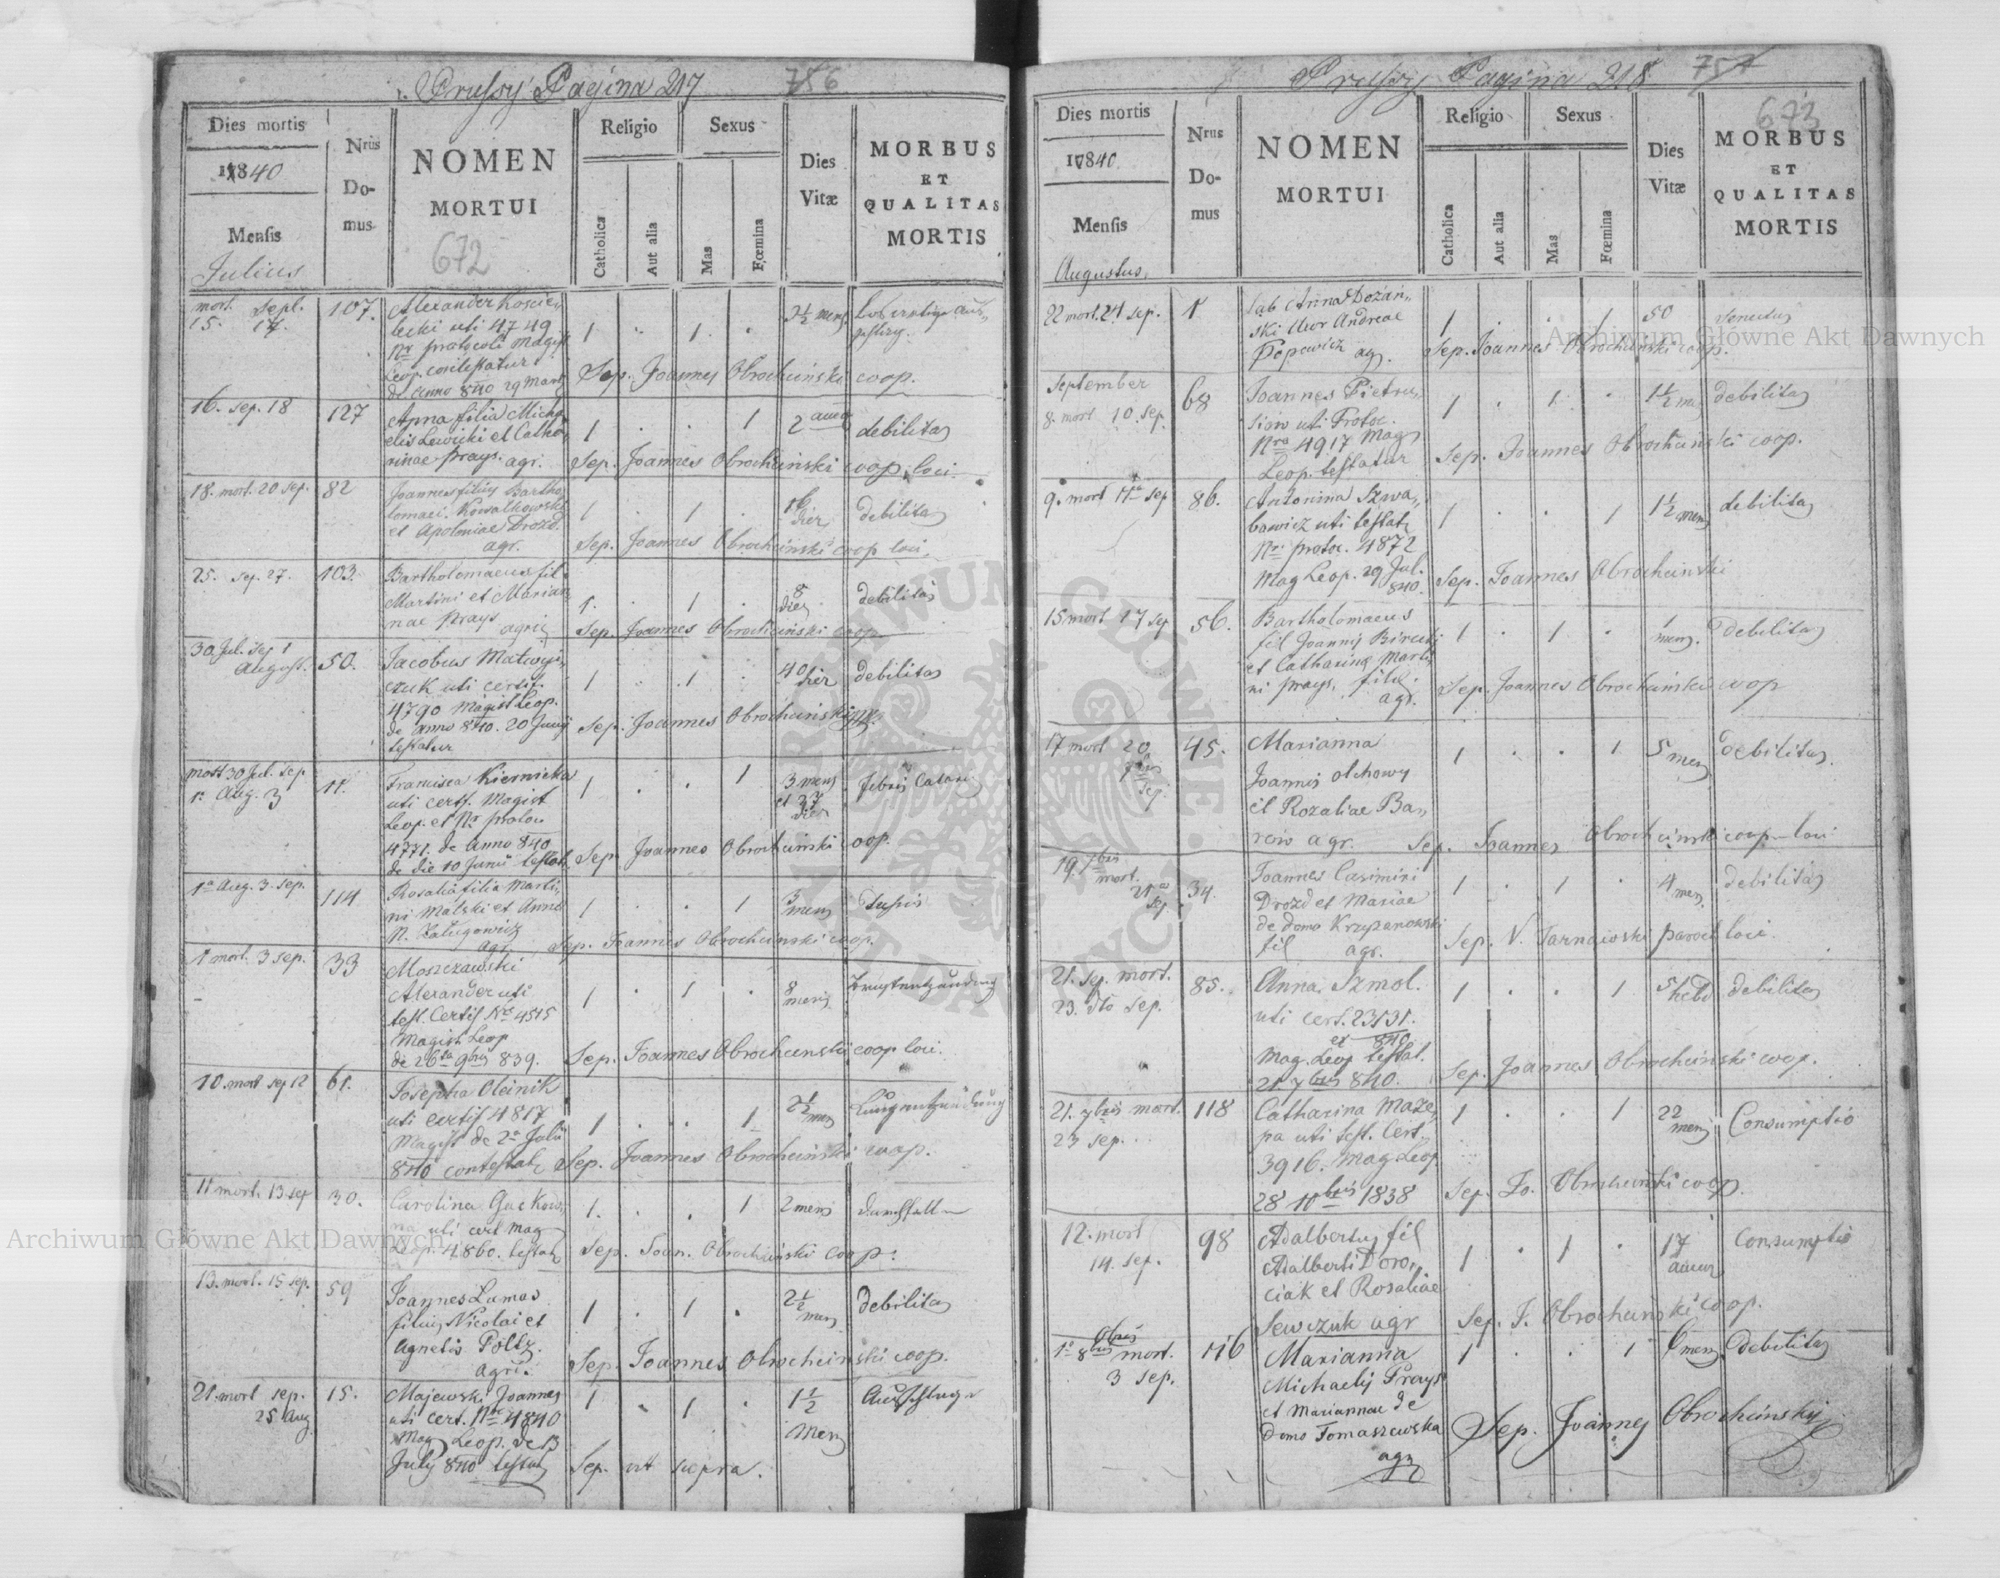 Prussy Pagina 217
756
Dies mortis
1840
Mensis
Julius
Nrus
Do-
mus
NOMEN
MORTUI
672
Religio
Catholica
Aut alia
Sexus
Mas
Fœmina
Dies
Vitæ
MORBUS
ET
QUALITAS
MORTIS
mort. sept.
15. 17.
107.
Alexander
uti 4749
Nr protocoli Magist
Leop.
de anno 840 29 Marti
1 . 1 .
2½ mens
Sep. Joannes Obrochciński coop.
16. sep. 18
127
Anna filia Micha
elis Lewicki et Catha
rinae Prays. agr.
1 . . 1
2
debilitas
Sep. Joannes Obrochciński coop. loci
18. mort. 20 sep.
82
Joannes filius Bartho
lomaei Kowalkowski
et Apoloniae Drozd.
agr.
1 . 1 .
16
dies
debilitas
Sep. Joannes Obrochciński coop loci.
25. sep. 27.
103.
Bartholomaeus fil.
Martini et Marian
nae Prays
1. . 1 .
8
dies
debilitas
Sep. Joannes Obrochciński coop.
30 Jul. Sep 1
August.
50.
Jacobus Matwij
czuk uti certif.
4790 Magist Leop.
de anno 840. 20 Junij
testatur
1 . 1 .
40
dies
debilitas
Sep. Joannes Obrochciński coop.
mort 30 Jul. sep
1a Aug. 3
11.
Francisca Kiernicka
uti certf. Magist
Leop. et Nr protoc
4771. de anno 840
de die 10 Junii testat.
1 . . 1
3 mens
et 27
dies
febris
Sep. Joannes Obrochciński coop.
1a Aug. 3. sep.
114
Rosalia filia Marti
ni Malski et Anna
N.
agr.
1 . . 1
3
mens
Tussis
Sep. Joannes Obrochcinski coop.
1 mort. 3 sep.
33
Moszczawski
Alexander uti
test. Certif No 4515
Magist Leop
de 26ta 9bris 839.
1 . 1 .
8
mens
Sep. Joannes Obrochcinski coop loci.
10. mort sep 12
61.
Josepha Oleinik
uti certif 4817
Magist de 2a Julii
840 contestat
1 . . 1
2½
mens
Lungentzündung
Sep. Joannes Obrochciński coop.
11 mort. 13. sep
30.
Carolina
uti cert Mag
Leop. 4860. testat
1. . . 1
2 mens
Sep. Joan. Obrochciński coop.
13. mort. 15 sep.
59
Joannes Lamas
filius Nicolai et
Agnetis Poltz.
agri.
1 . 1 .
2½
mens
debilitas
Sep. Joannes Obrochcinski coop.
21. mort sep.
25 Aug
15.
Majewski Joannes
uti cert. Nro 4840
Mag Leop. de 13
July 840 testat
1 . 1 .
1½
mens
Sep. ut supra.
Prussy Pagina 218
757
Dies mortis
1840
Mensis
Augustus.
Nrus
Do-
mus
NOMEN
MORTUI
Religio
Catholica
Aut alia
Sexus
Mas
Fœmina
Dies
Vitæ
673
MORBUS
ET
QUALITAS
MORTIS
22 mort. 24 sep.
1
Anna Dozań
ski Uxor Andreae
Popowicz ag.
1 . . 1
50
Senectus
Sep. Joannes Obrochciński coop.
September
8. mort 10. sep.
68
Joannes Pietru
siow uti Protoc.
Nro 4917 Mag
Leop. testatur
1 . 1. .
1½ mens
debilitas
Sep. Joannes Obrochciński coop.
9. mort 11a sep
86.
Antonina Szwa
bowicz uti testat
Nri protoc. 4872
Mag Leop. 29 Jul.
840.
1 . . 1
1½ mens
debilitas
Sep. Joannes Obrochcinski
15 mort 17 sep
56.
Bartholomaeus
fil Joannis Birecki
et Catharina Marti
ni Prays. filae.
agr.
1 . 1 .
1
mens.
Debilitas
Sep. Joannes Obrochciński coop
17 mort 20
7bris
sep.
45.
Marianna
Joannis Olchowy
et Rozaliae Ba
row agr.
1 . . 1
5 mens
debilitas.
Sep. Joannes Obrochcinski coop loci
19. 7bris
mort.
21a
sep
34.
Joannes Casimiri
Drozd et Mariae
de domo Krzyzanowski
fil agr.
1 . 1 .
4 men.
debilitas
Sep. V. Tarnawski paroch loci.
21. sep. mort.
23. dto sep.
85.
Anna Szmol.
uti cert. 23131.
et 840
Mag. Leop testat.
21 7bris 840.
1 . . 1
5
hebd
debilitas
Sep. Joannes Obrochciński coop.
21. 7bris mort.
23 sep...
118
Catharina Maze
pa uti test. Cert.
3916. Mag Leop
28 10bris 1838
1 . . 1
22
mens
Consumptio
Sep. Jo. Obrochciński coop.
12. mort
14. sep.
98
Adalbertus fil
Adalberti Doro
ciak et Rosaliae
Sewczuk agr
1 . 1 .
17
Consumptio
Sep. J. Obrochciński coop.
1a 8bris mort.
3 sep.
116
Marianna
Michaelis Prays
et Mariannae de
domo Tomaszewska
agr
1 . . 1
6 mens
Debilitas
Sep. Joannes Obrochcinski
Archiwum Główne Akt Dawnych
Archiwum Główne Akt Dawnych
ARCHIWUM GŁÓWNE AKT DAWNYCH